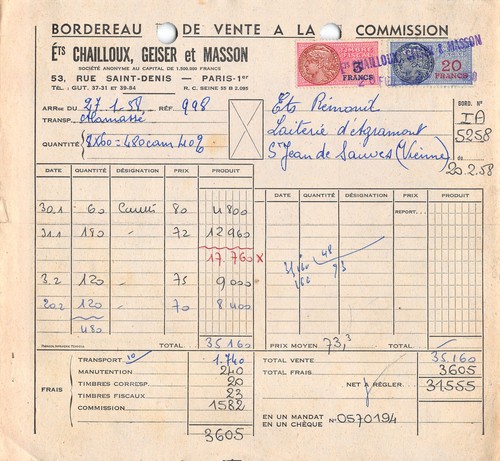 BORDEREAU DE VENTE A LA COMMISSION
Éts CHAILLOUX, GEISER et MASSON
SOCIÉTÉ ANONYME AU CAPITAL DE 1.500.000 FRANCS
53, RUE SAINT-DENIS - PARIS-1er
TÉL. : GUT. 37-31 et 39-84 R. C. SEINE 55 B 2.093
TIMBRE FISCAL
FRANCS
20 FRANCS
CHAILLOUX, GEISER & MASSON
ARRge DU 27.1.58 RÉF. 998
TRANSP.
QUANTITÉ 8x60=480 cam 40%
Ets Rémond
Laiterie d'Agramont
St Jean de Sauves (Vienne)
BORD. N°
IA
5258
du
20.2.58
DATE QUANTITÉ DÉSIGNATION PRIX PRODUIT
30.1 60 80 4800
31.1 180 " 72 12960
17.760 x
3.2 120 " 75 9000
20.2 120 " 70 8400
480
TOTAL 35160
DATE QUANTITÉ DÉSIGNATION PRIX PRODUIT
REPORT
48
73
PRIX MOYEN 73,3 TOTAL
FRAIS
TRANSPORT 10 1.740
MANUTENTION 240
TIMBRES CORRESP. 20
TIMBRES FISCAUX 23
COMMISSION 1582
3605
TOTAL VENTE 35.160
TOTAL FRAIS 3605
NET A RÉGLER 31555
EN UN MANDAT
EN UN CHÈQUE N° 0570194